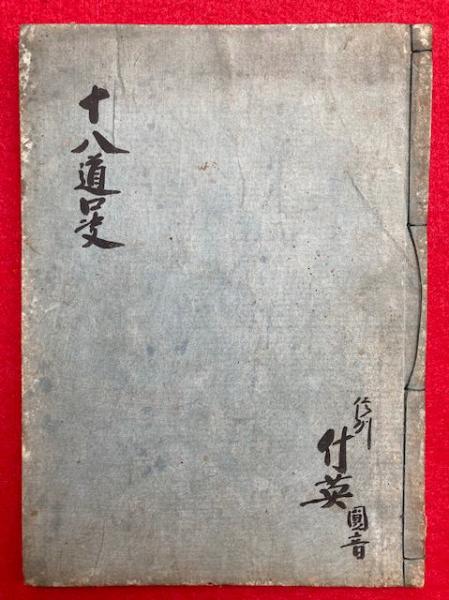 十八道口决
信州
什英
圓音